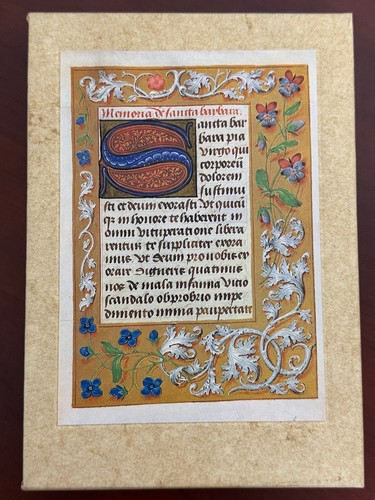 Memoria de sancta barbara.
Sancta bar
bara pia
virgo qui
corporeũ
dolorem
sustinui
sti et deum exorasti Vt quicũ
qȝ in honore te haberent in
omni vituperatione libera
rentur te suppliciter exora
mus vt deum pro nobis ex
orare digneris quatinus
nos de mala infamia vicio
scandalo obprobrio impe
dimento nimia paupertate